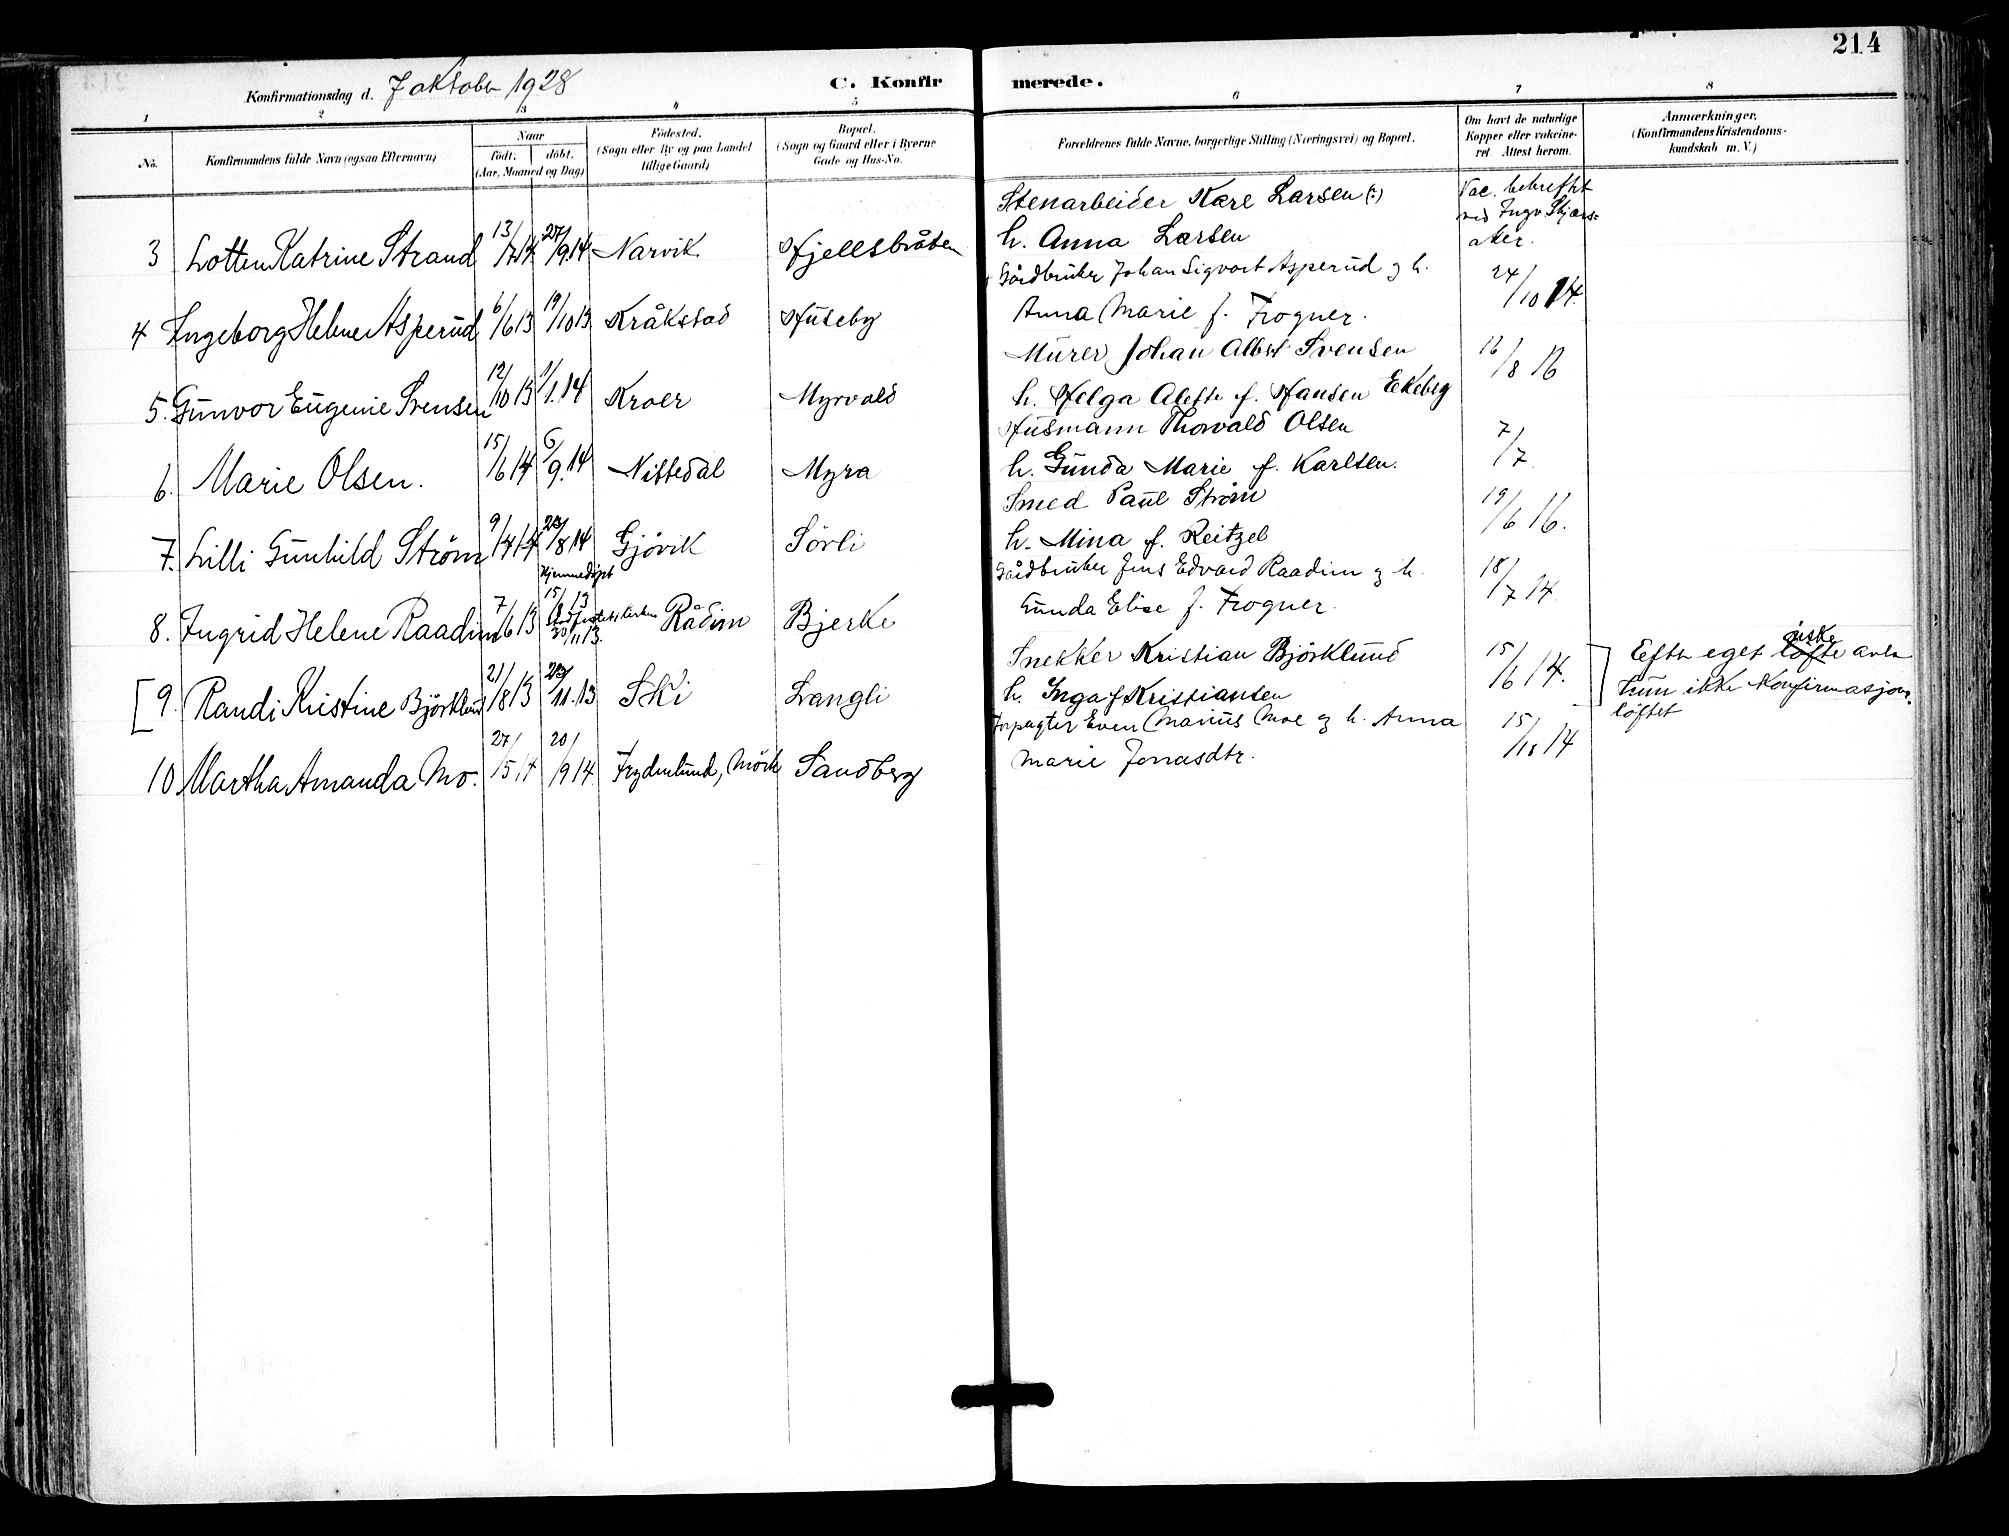 214
Konfirmationsdag d. 7 oktober 1928
C. Konfirmerede.
1 2 3 4 5 6 7 8
No.
Konfirmandens fulde Navn (ogsaa Efternavn)
Naar
født. døbt.
(Aar, Maaned og Dag)
Fødested.
(Sogn eller By og paa Landet
tillige Gaard)
Bopæl.
(Sogn og Gaard eller i Byerne
Gade og Hus-No.
Forældrenes fulde Navne, borgerlige Stilling (Næringsvei) og Bopæl.
Om havt de naturlige
Kopper eller vakcine-
ret. Attest herom.
Anmærkninger.
(Konfirmandens Kristendoms-
kundskab m. V.)
3 Lotten Katrine Strand 13/7 14 27/9 14 Narvik Hjellsbråten
Stenarbeider Kare Larsen (:)
h. Anna Larsen
Vac. bekreftet
ved Ingv Skjærs=
aker.
4 Ingeborg Helene Asperud 6/6 13 19/10 13 Kråkstad Huseby
Gårdbruker Johan Sigvart Asperud og h.
Anna Marie f. Frogner.
24/10 14
5. Gunvor Eugenie Svensen 12/10 13 1/1. 14 Kroer Myrvold
Murer Johan Albert Svensen
h. Helga Alette f. Hansen Ekeberg
16/8 16
6. Marie Olsen. 15/6 14 6/9. 14 Nittedal Myra
Husmann Thorvald Olsen
h. Gunda Marie f. Karlsen.
7/7
7. Lilli Gunhild Strøm 9/4 14 23/8 14 Gjøvik Sørli
Smed Paul Strøm
h. Mina f. Reitzel
19/6 16.
8. Ingrid Helene Raadim 7/6 13 Hjemmedøpt
15/ 13
30/11 13. Rådim Bjerke
Gårdbruker Jens Edvard Raadim og h.
Gunda Elise f. Frogner.
18/7 14
[9. Randi Kristine Bjørklund 21/8 13 23/11. 13 Ski Langli
Snekker Kristian Bjørklund
h. Inga f Kristiansen
15/6 14.
Efter eget løfte ønske avla
hun ikke Konfirmasjons-
løftet
10 Martha Amanda Mo. 27/5 14 20/9 14. Frydenlund, Mörk Sandberg
Forpagter Even Marius Moe og h. Anna
Marie Jonasdtr.
15/10 14